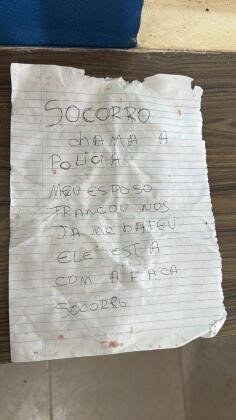 SOCORRO
CHAMA A
POLICIA
MEU ESPOSO
TRANCOU NOS
JA ME BATEU
ELE EST A
COM A FACA
SOCORRO